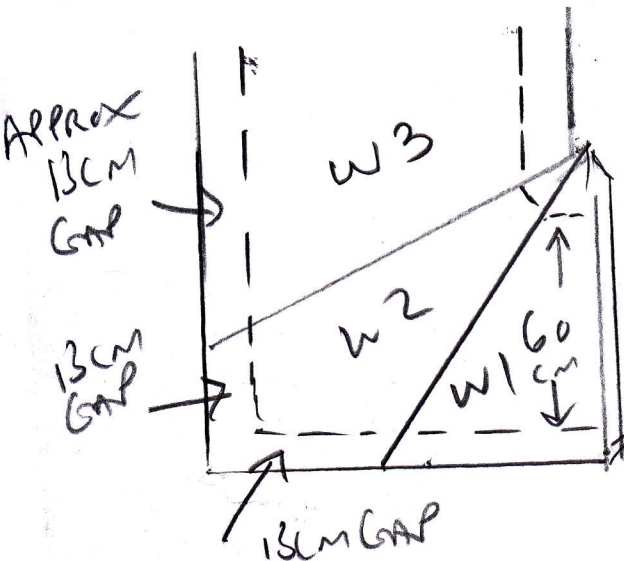 APPROX
13CM
GAP
W3
13CM
GAP
W2
W1
60
CM
13CM GAP